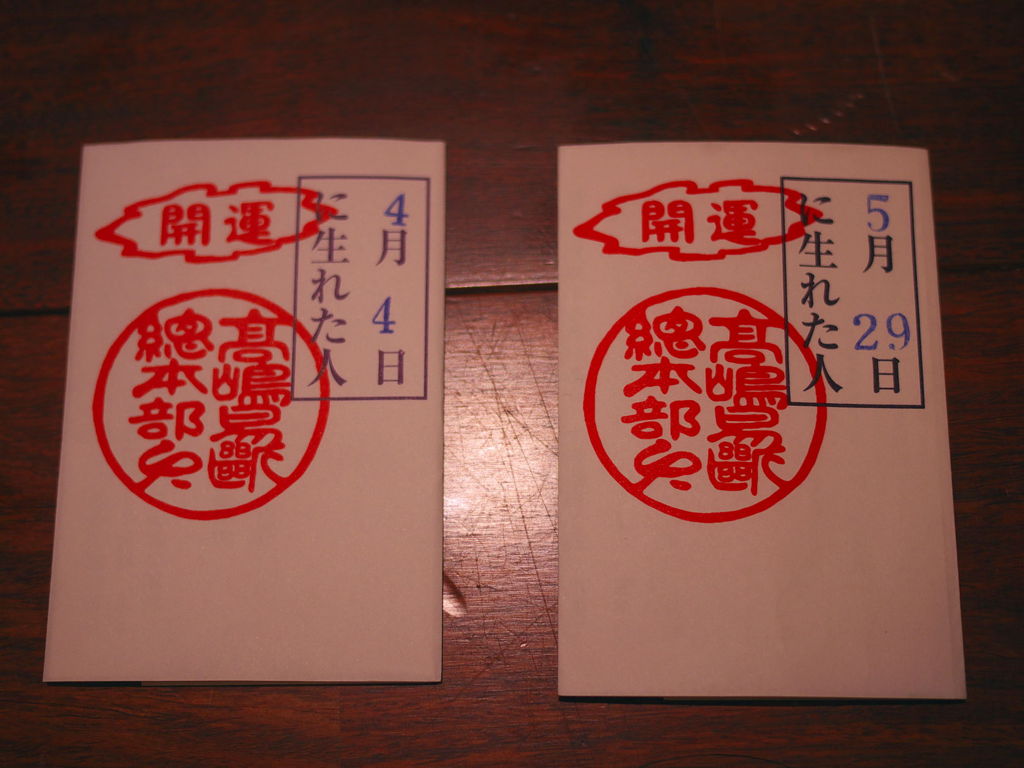 開運
4月4日
に生れた人
高嶋易斷
總本部
開運
5月29日
に生れた人
高嶋易斷
總本部